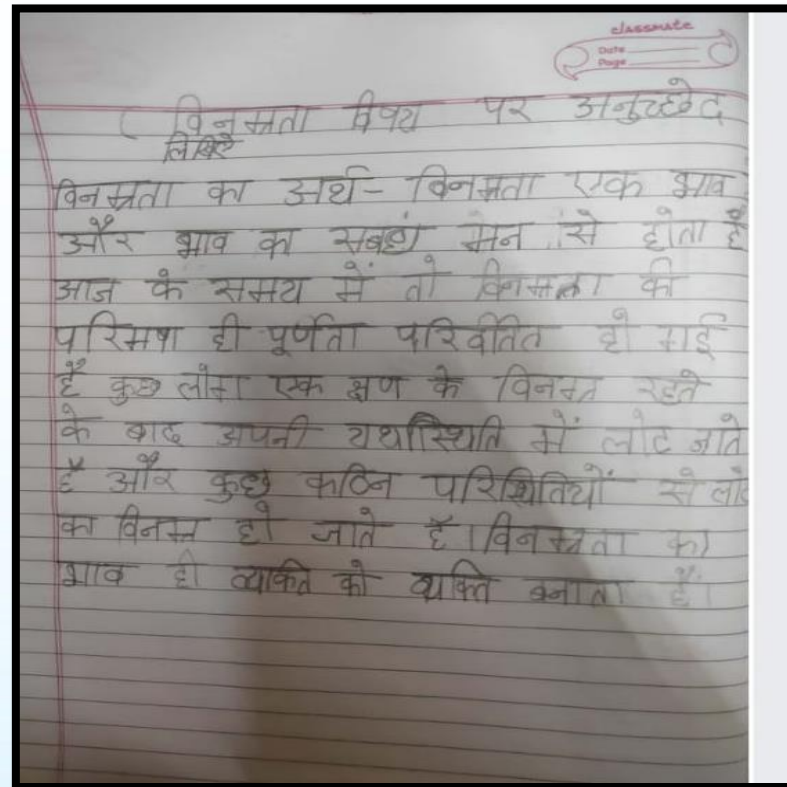 classmate
Date
Page
विनम्रता विषय पर अनुच्छेद
लिखिए
विनम्रता का अर्थ- विनम्रता एक भाव
और भाव का सबधं मन से होता है
आज के समय में तो विनम्रता की
परिमषा ही पूर्णता परिवर्तित हो गई
है कुछ लोग एक क्षण के विनम्र रहते
के बाद अपनी यथास्थिति में लोट जाते
है और कुछ कठिन परिस्थितियों से
का विनम्र हो जाते हैं। विनम्रता का
भाव ही व्यक्ति को व्यक्ति बनाता है।